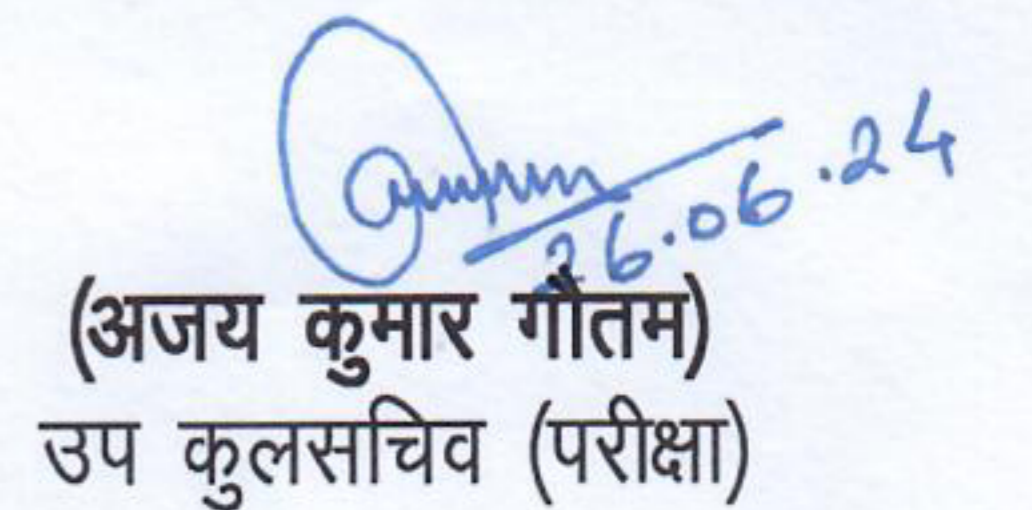 26.06.24
(अजय कुमार गौतम)
उप कुलसचिव (परीक्षा)